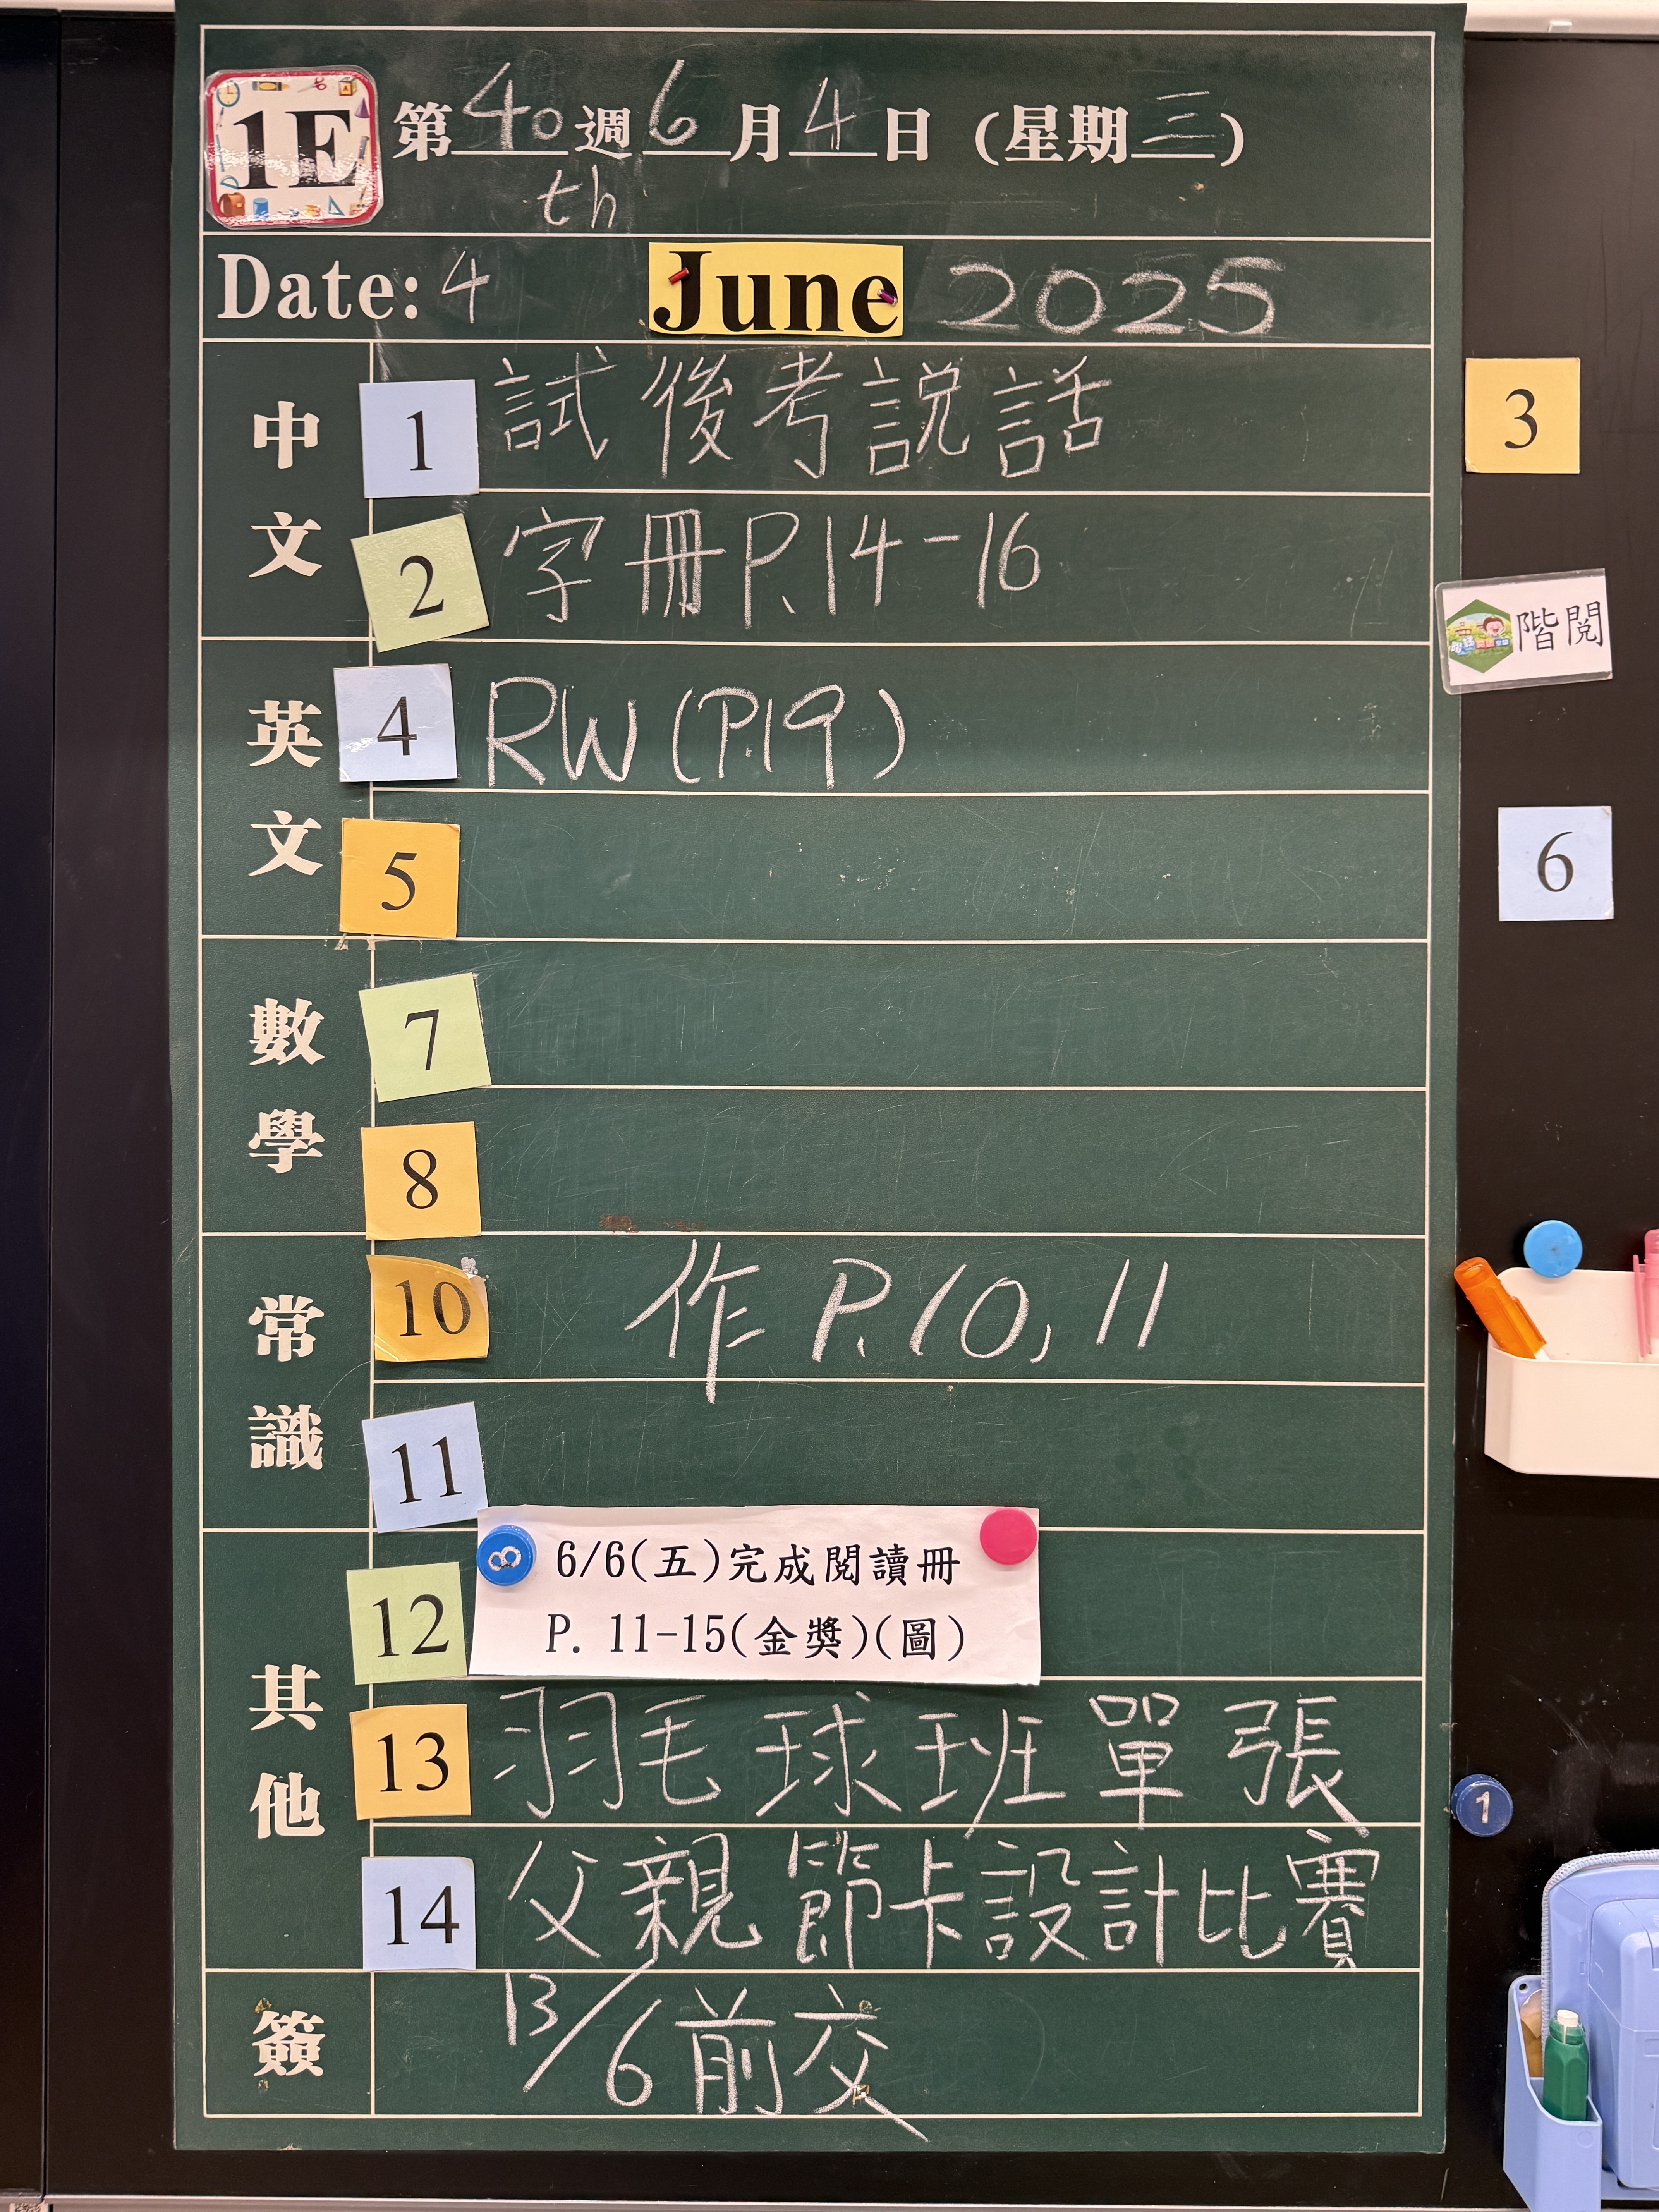 1E 第40週6月4日（星期三）
th
Date: 4 June 2025
中文
1 試後考説話
3
2 字冊P.14-16
階閱
英文
4 RW (P.19)
5
6
數學
7
8
常識
10 作 P.10, 11
11
其他
12 8 6/6(五)完成閱讀冊
P. 11-15(金獎)(圖)
13 羽毛球班單張
1
14 父親節卡設計比賽
簽
13/6前交